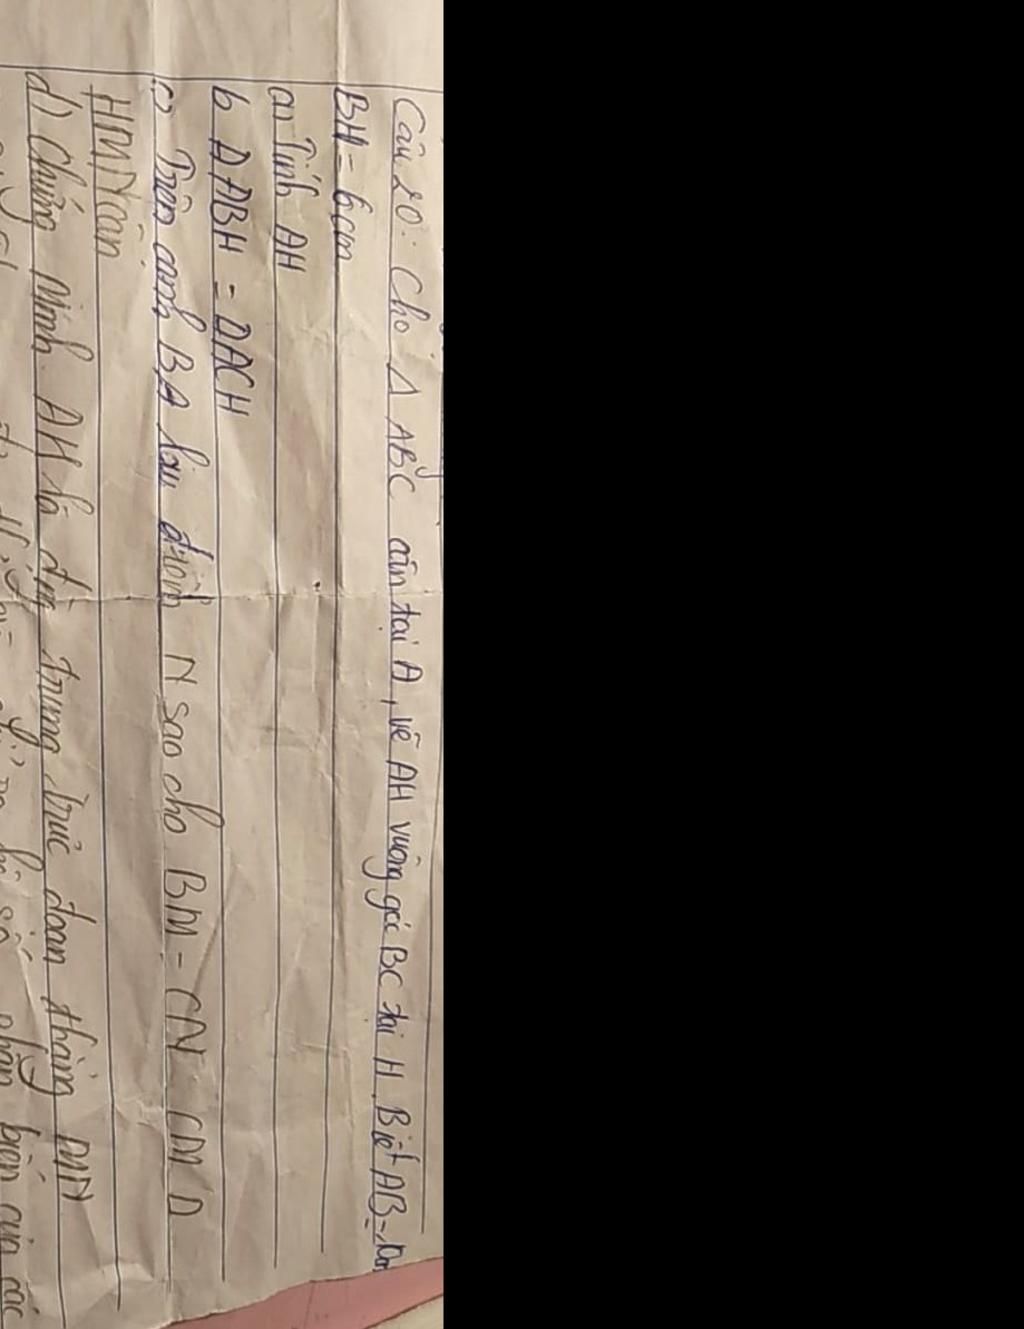 Câu 20: Cho Δ ABC cân tại A, vẽ AH vuông góc BC tại H. Biết AB =
BH = 6cm
a) Tính AH
b Δ ABH = ΔACH
c) Trên cạnh BA lấy điểm N sao cho BM = CN CM Δ
HMN cân
d) Chứng Minh AH là đường trung trực đoạn thẳng MN
phân biến của các